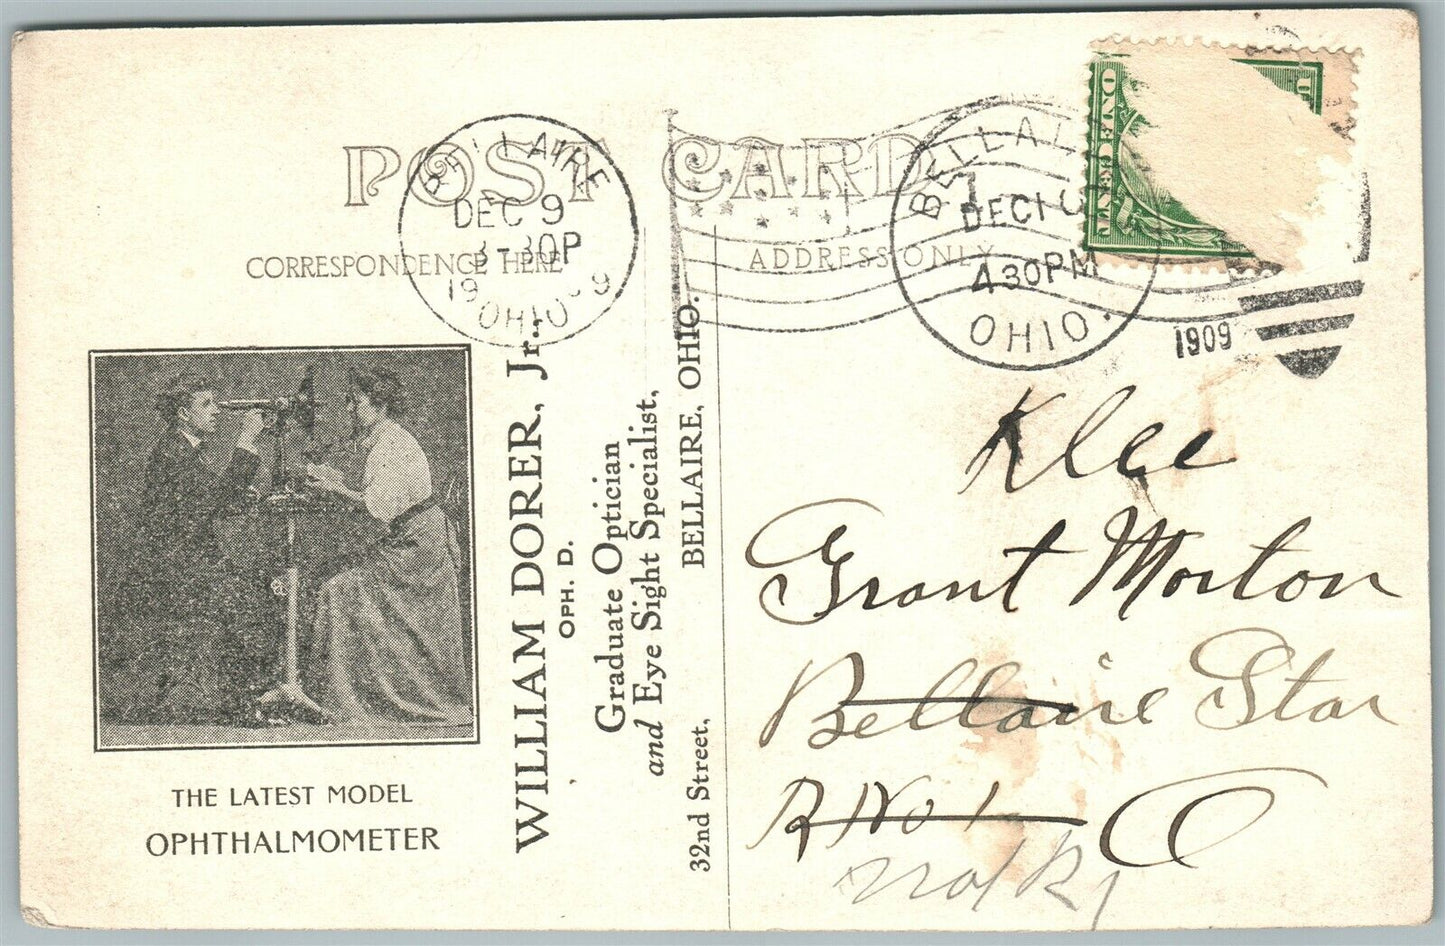 POST CARD
CORRESPONDENCE HERE
ADDRESS ONLY
BELLAIRE
DEC 9
3-30P
19 9
OHIO
BELLAI
DEC 10
4 30 PM
OHIO.
1909
ONE CENT
THE LATEST MODEL
OPHTHALMOMETER
WILLIAM DORER, Jr.,
OPH. D.
Graduate Optician
and Eye Sight Specialist,
32nd Street., BELLAIRE, OHIO.
Klee
Grant Morton
Bellaire Star
R No 1 O